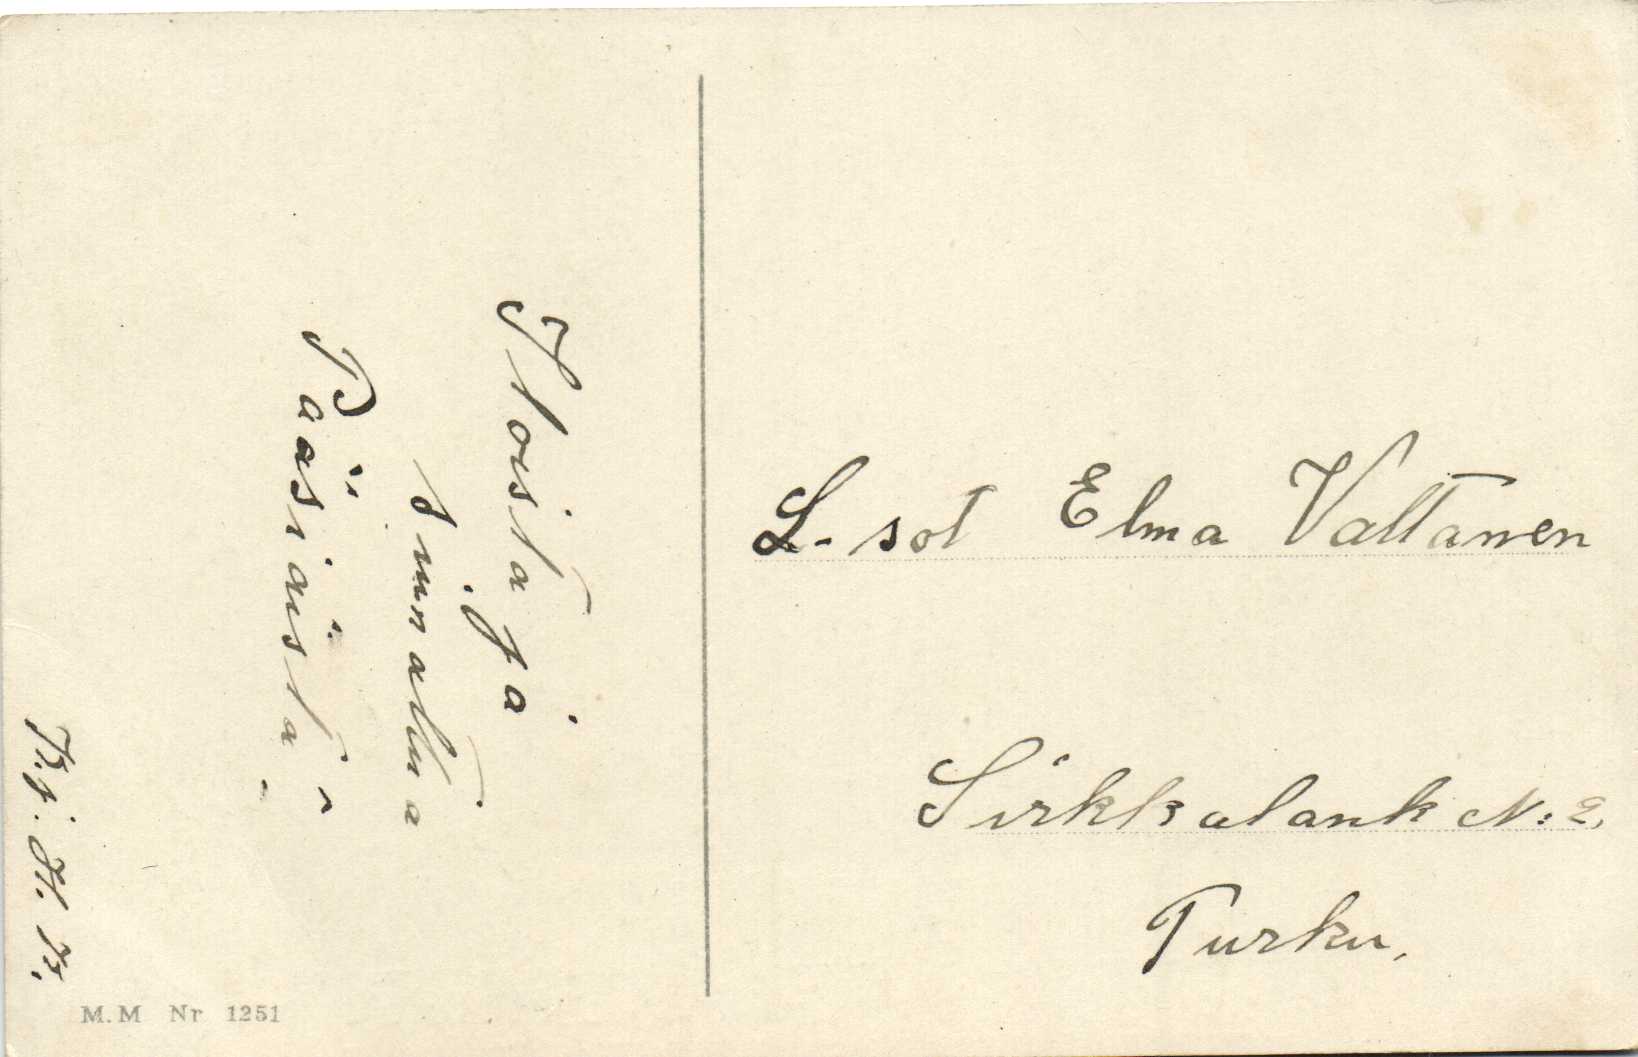 Iloista ja
siunattua
Pääsiäistä
L-sot Elma Valtanen
Sirkkalank N:2.
Turku.
M.M Nr 1251